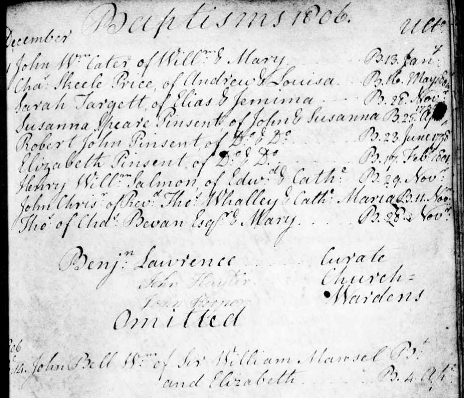 Baptisms 1806.
December
John Wm Cater of Willm & Mary B. 13. Jany
Chas Skeele Price, of Andrew & Louisa B. 16. May
Sarah Targett, of Elias & Jemima B. 28. Novr
Susanna Speare Pinsent of John & Susanna B. 25.
Robert John Pinsent of Do & Do B. 23. June
Elizabeth Pinsent of Do & Do Feby
Henry Willm Salmon, of Edwd & Cathe B. 29. Novr
John Chrisr of Revd Thos Whalley & Cathe Maria B. 11. Novr
Thos of Chas Bevan Esqr & Mary B. 28. Novr
Benjn Lawrence Curate
John Church=
Wardens
Omitted
John Bell Wm of Sir William Mansel Bt
and Elizabeth B. 4.